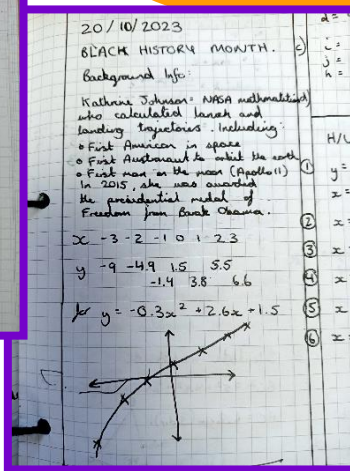 20/10/2023
BLACK HISTORY MONTH.
Background Info:
Kathrine Johnson = NASA
who calculated lanch and
landing trajectories. Including:
• First American in space
• First Austronaut to orbit the earth
• First man on the moon (Apollo 11)
In 2015, she was awarded
the presidential medal of
Freedom from Barak Obama.
x -3 -2 -1 0 1 2 3
y -9 -4.9 1.5 5.5
-1.4 3.8 6.6
for y = -0.3x² + 2.6x + 1.5
c)
d =
i =
j =
h =
H/L
① y =
x =
② x =
③ x
④ x
⑤ x
⑥ x =